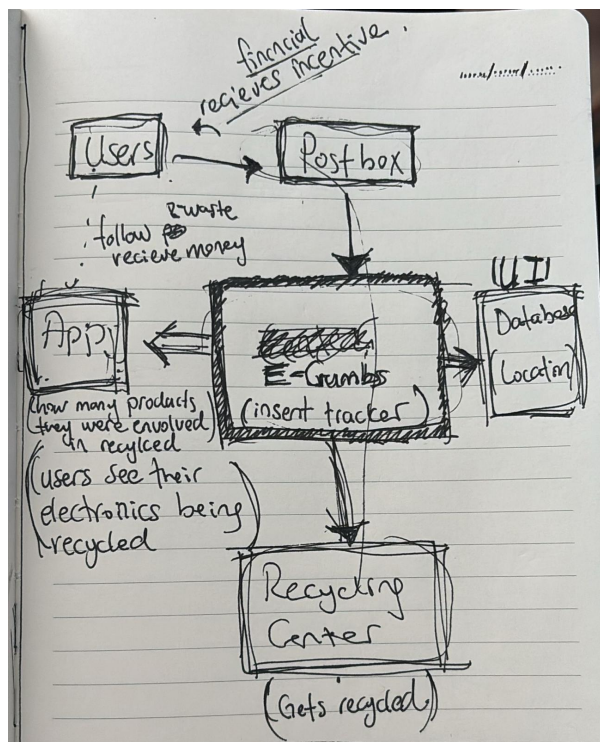 financial
recieves incentive.
Users
Postbox
E-waste
follow
recieve money
(UI)
App
E-Crumbs
(insent tracker)
Database
(Location)
(how many products
they were envolved
in recylced)
(users see their
electronics being
recycled)
Recycling
Center
(Gets recycled)